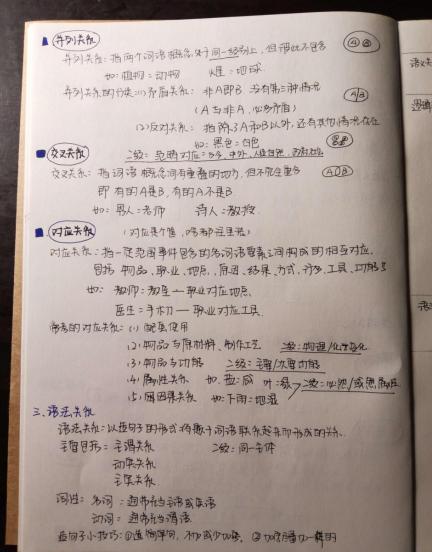 并列关系 A B
并列关系：指两个词语概念处于同一级别上，但彼此不包含
如：植物：动物 火星：地球
并列关系的分类：(1)矛盾关系：非A即B 没有第三种情况 A|B
(A与非A，必矛盾)
(2)反对关系：指除了A和B以外，还有其他情况存在
如：黑色：白色
交叉关系 二级：范畴对应
交叉关系：指词语概念间有重叠的地方，但不完全重合
即有的A是B，有的A不是B
如：男人：老师 诗人：教授
对应关系 (对应是个筐，啥都往里装)
对应关系：指一定范围事件包含的各词语要素之间构成的相互对应，
包括物品、职业、地点、原因、结果、方式、工具、功能等
如：教师：教室——职业对应地点
医生：手术刀——职业对应工具
常考的对应关系：(1)配套使用
(2)物品与原材料、制作工艺 二级：物理/化学变化
(3)物品与功能 二级：主要/次要功能
(4)属性关系 如：盐：咸 叶：绿 二级：必然/或然属性
(5)因果关系 如：下雨：地湿
三.语法关系
语法关系：以造句子的形式将数个词语联系起来而形成的关系.
主要包括：主谓关系 二级：同一主体
动宾关系
主宾关系
词性：名词：通常充当主语或宾语
动词：通常充当谓语
造句子小技巧：①造简单句，不加或少加字，